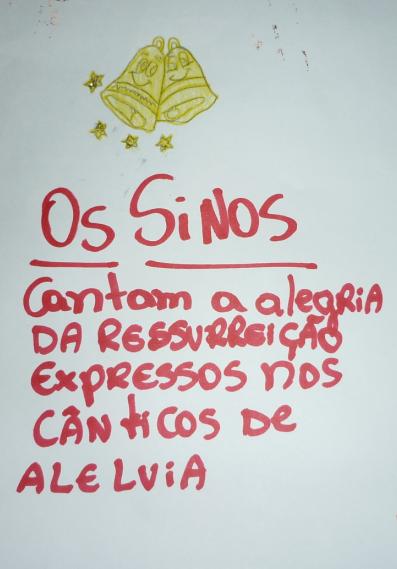 Os SiNOS
Cantam a alegRiA
DA RESSURREIÇÃO
EXPRESSOS nos
CÂNticos DE
ALELUiA